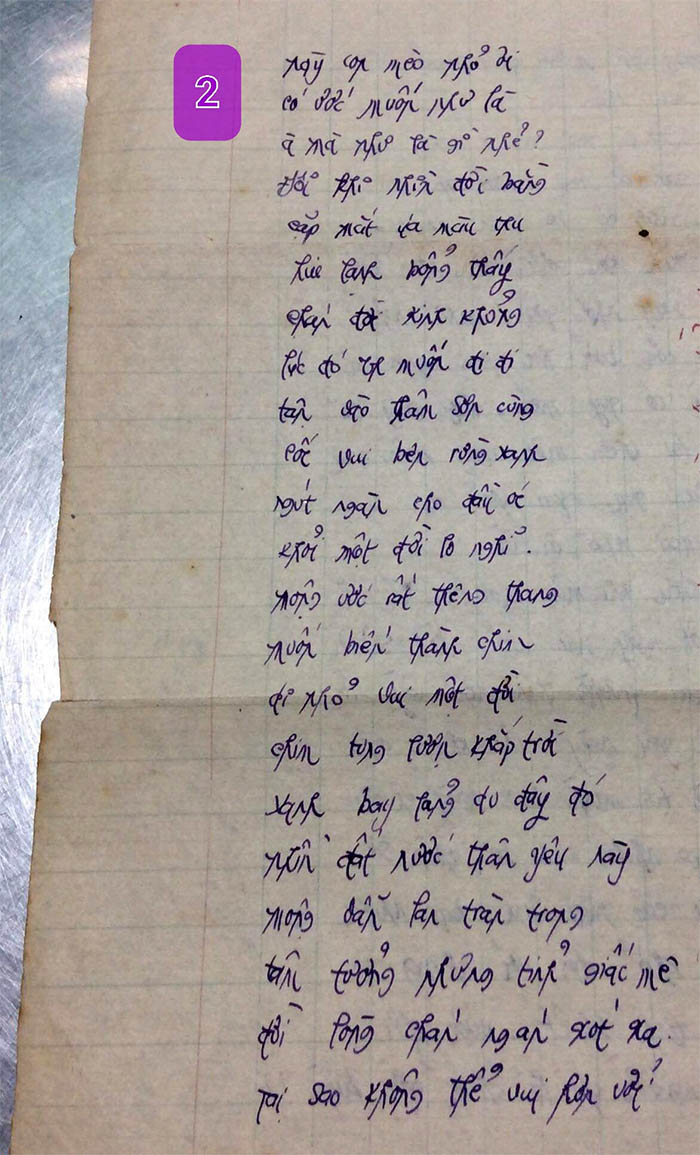 2
này con mèo nhỏ ơi
có ước muốn như là
à mà như là gì nhể?
đôi khi nhìn đời bằng
cặp mắt và màu thu
lúc lanh bổng thấy
chán đời kinh khổng
lúc đó tự muốn đi đó
tận vào thâm sơn cùng
cốc vui bên rừng xanh
ngút ngàn cho đầu óc
khỏi một đời lo nghỉ.
mộng ước rất thênh thang
muốn biến thành chim
di nhỏ vui một đời
chim tung lượn khắp trời
xanh bay lảng du đây đó
nhìn đất nước thân yêu này
mộng vẫn lan tràn trong
tâm tưởng nhưng tỉnh giấc mê
đời lòng chán ngán xót xa.
tại sao không thể vui hơn với